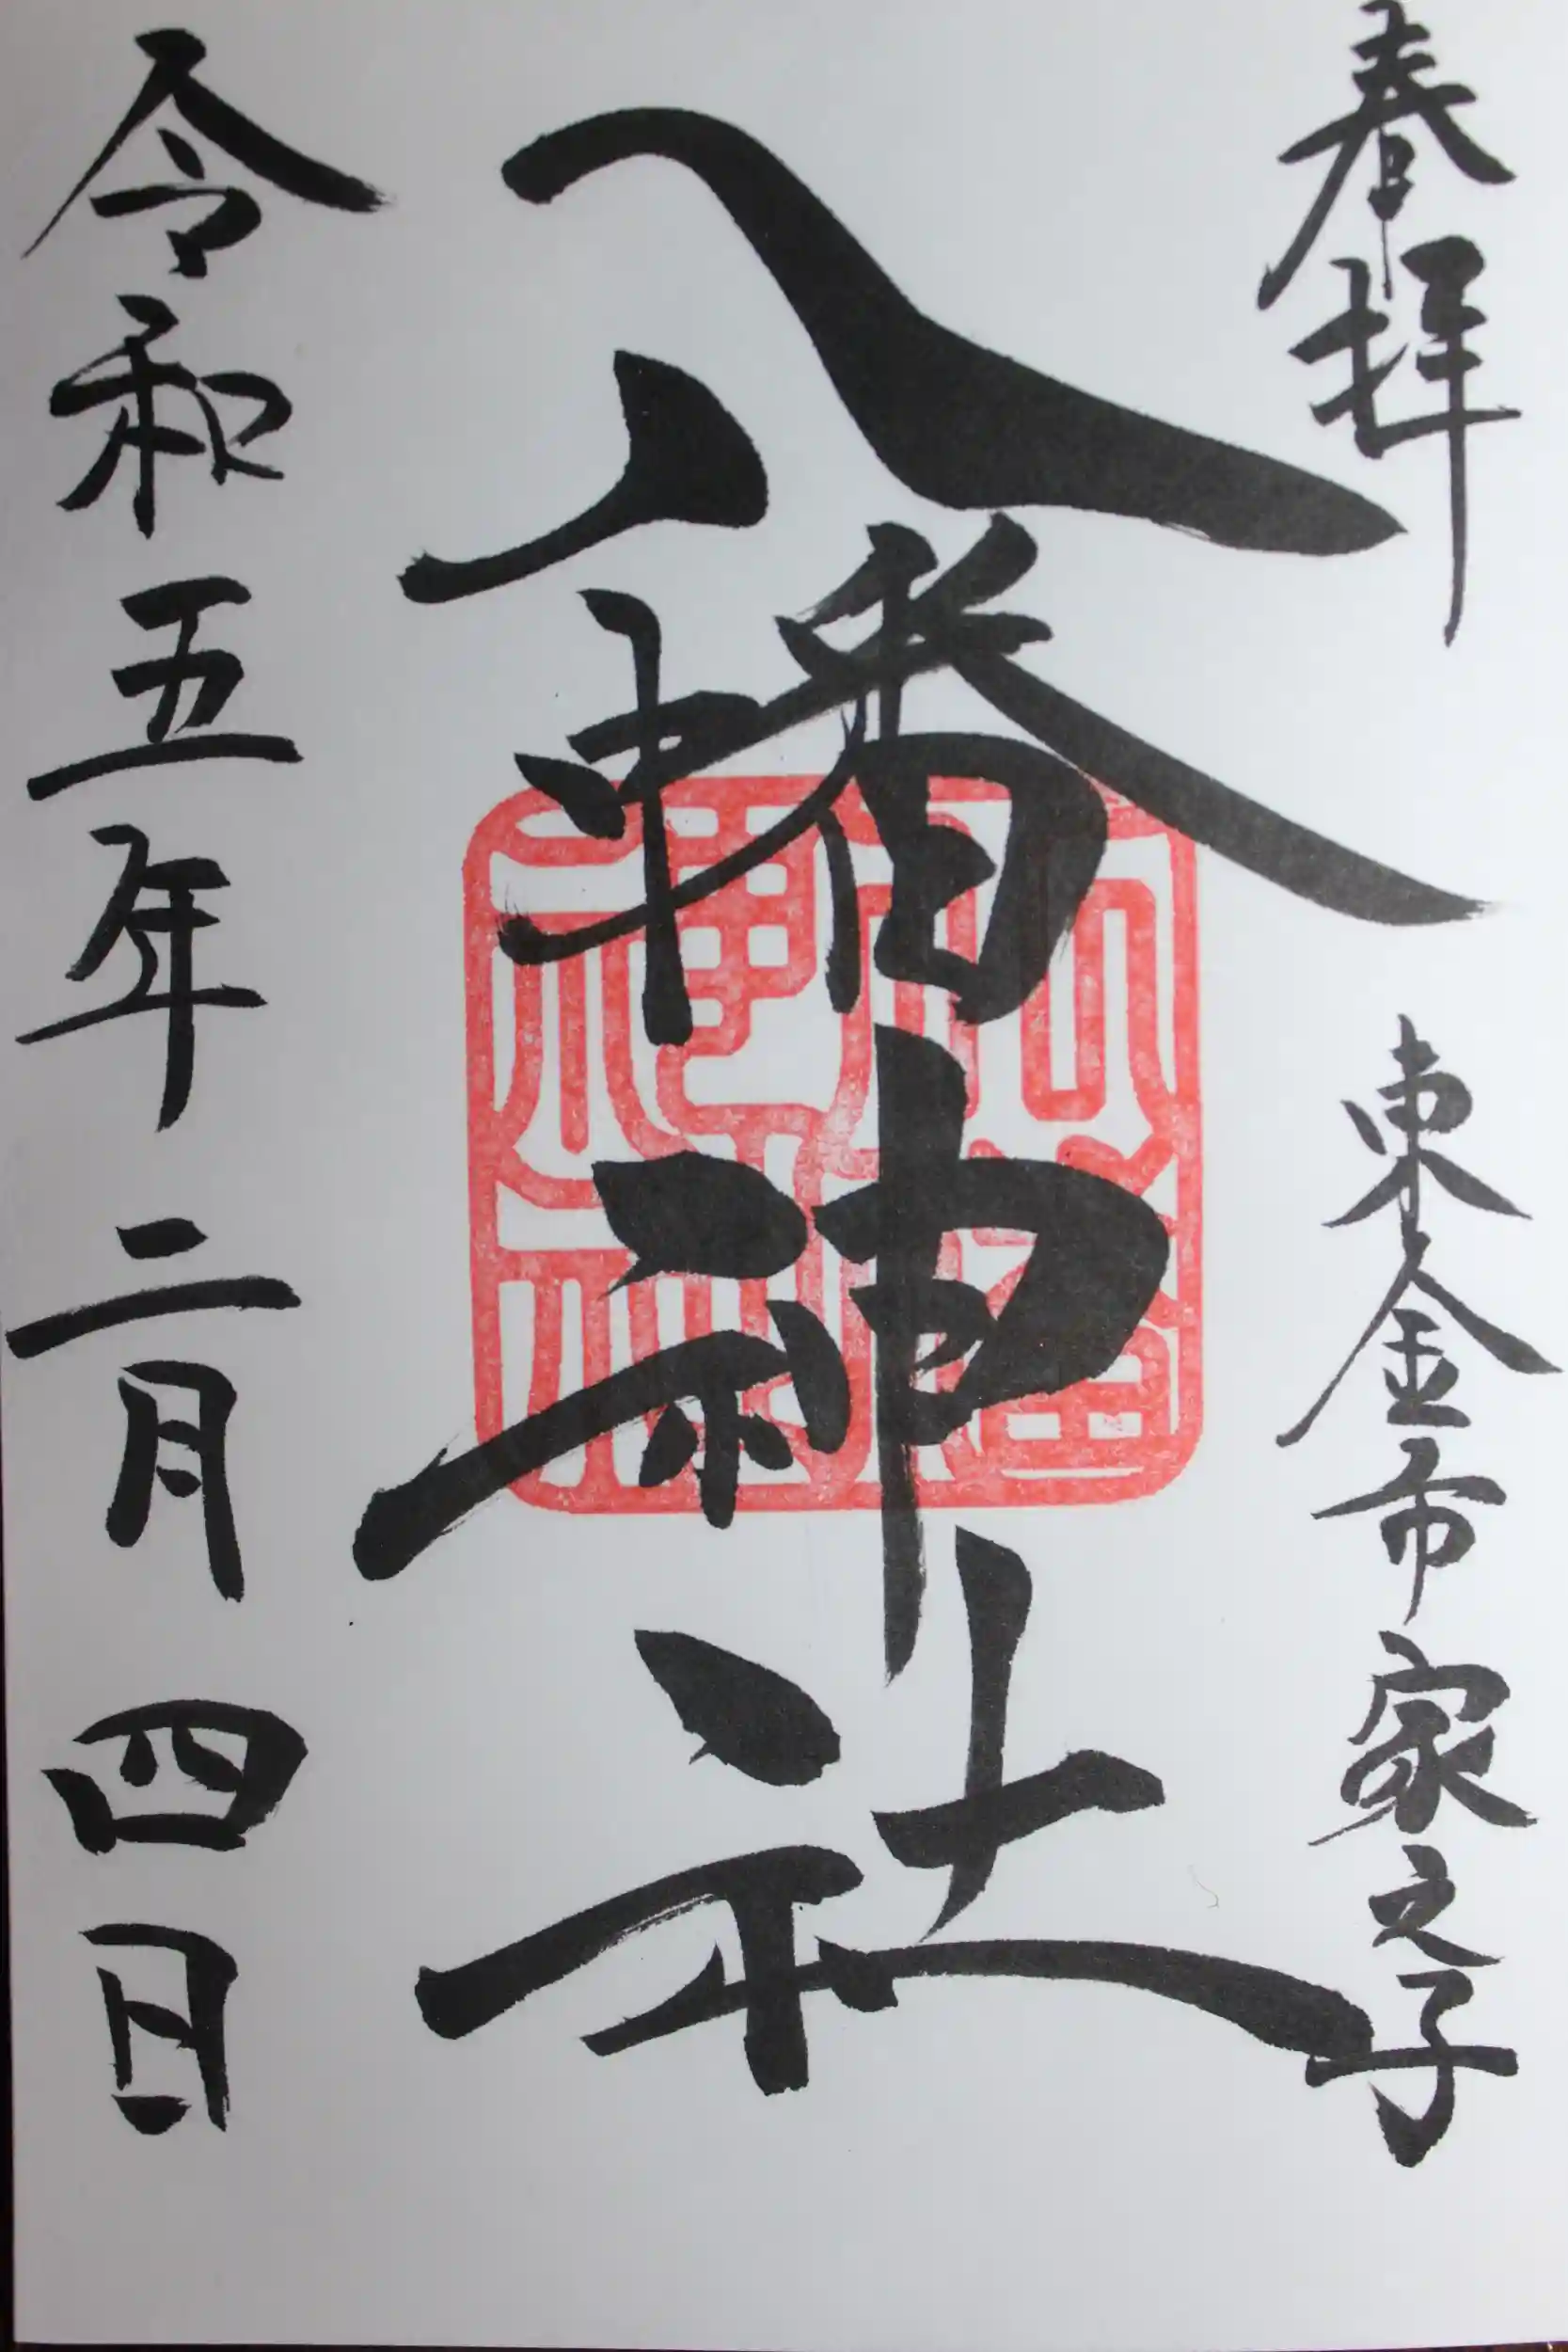 奉拝　東金市家之子
八幡神社
令和五年二月四日